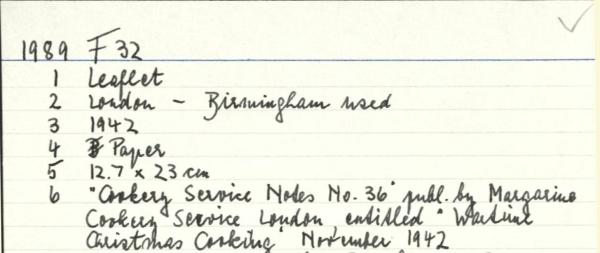 1989 F 32
1 Leaflet
2 London - Birmingham used
3 1942
4 Paper
5 12.7 x 23 cm
6 "Cookery Service Notes No. 36" publ. by Margarine
Cookery Service London, entitled "Wartime
Christmas Cooking" November 1942